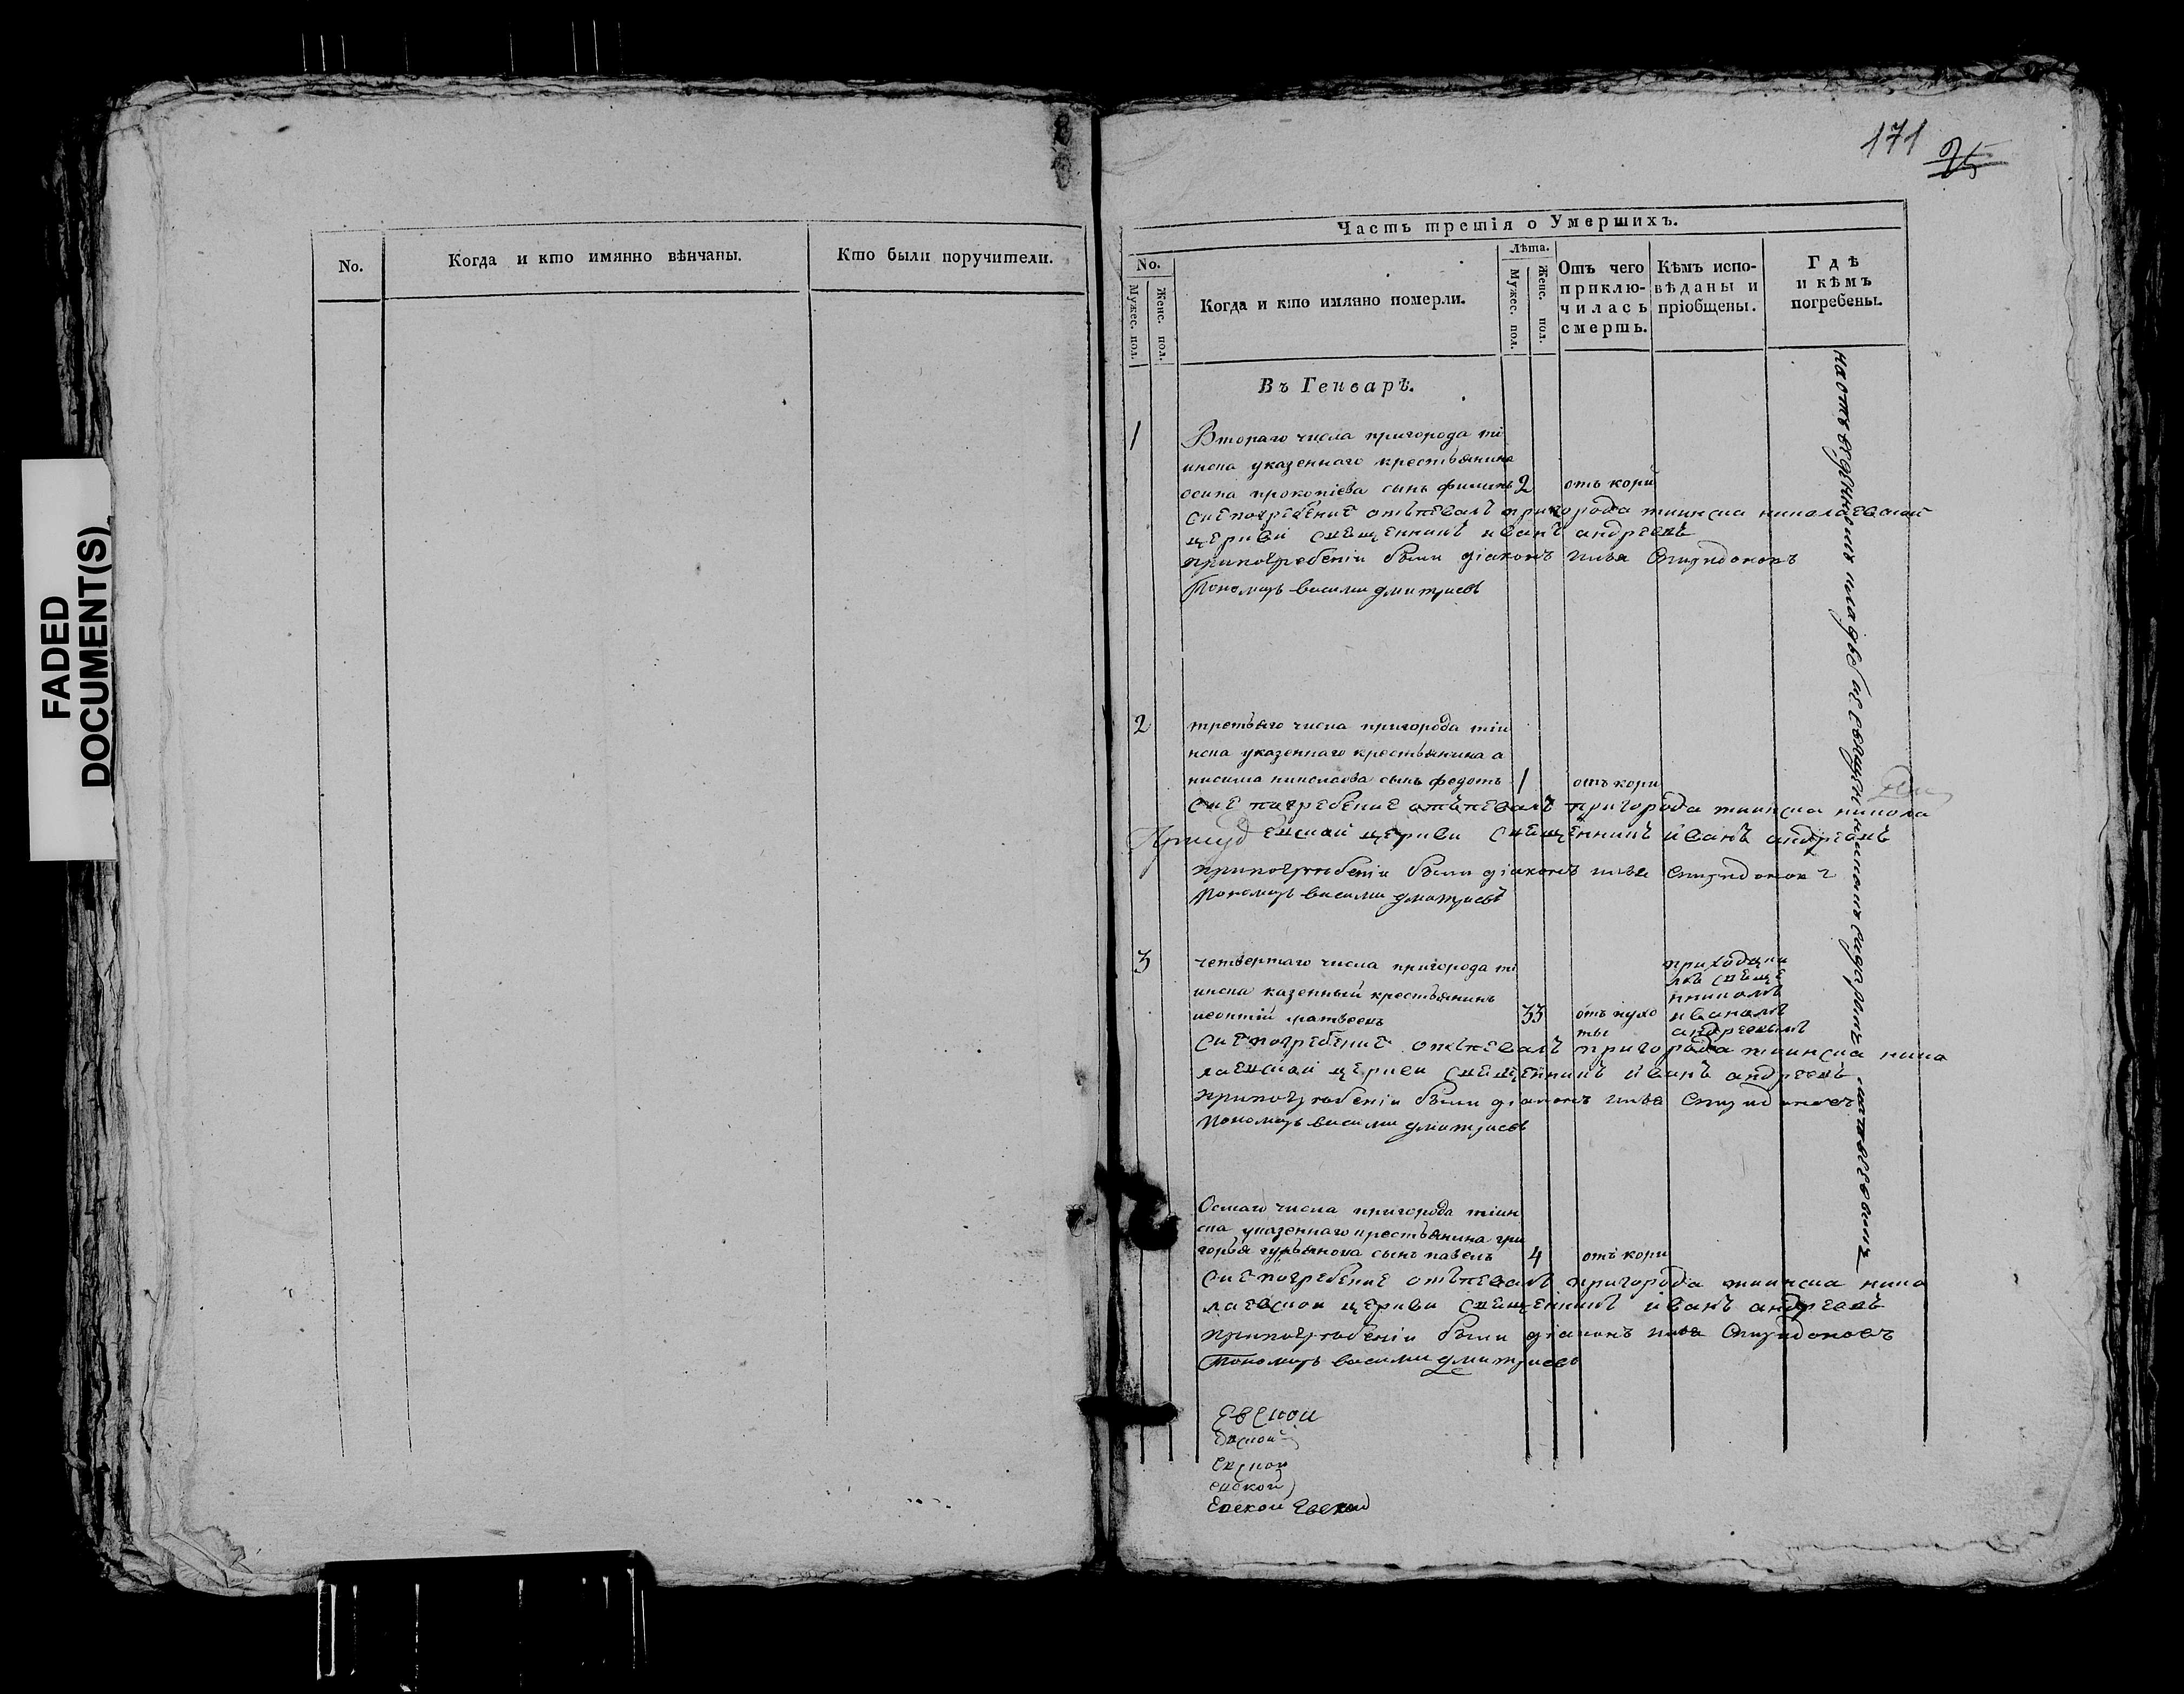 FADED
DOCUMENT(S)
No.
Когда и кто имянно вѣнчаны.
Кто были поручители.
171
25
Часть третія о Умершихъ.
No.
Мужес. пол.
Женс. пол.
Когда и кто имянно померли.
Лѣта.
Мужес. пол.
Женс. пол.
Отъ чего
приклю-
чилась
смерть.
Кѣмъ испо-
вѣданы и
пріобщены.
Гдѣ
и кѣмъ
погребены.
Въ Генварѣ.
1
Втораго числа пригорода ті
инска указеннаго крестьянина
осипа прокопіева сынъ филипъ 2 отъ кори
сие погребение отъпевалъ пригорода тиинска николаевской
церкви свещенникъ иванъ андреевъ
припогребеніи были діаконъ илья Спиридоновъ
Пономарь василии дмитриевъ
2
третьяго числа пригорода тіи
нска указеннаго крестьянина а
нисима николаева сынъ федотъ 1 отъ кори
сие погребение отъпевалъ пригорода тиинска никола
евской церкви свещенникъ иванъ андреевъ
припогребеніи были діаконъ илья Спиридонов
Пономарь василии дмитриевъ
3
четвертаго числа пригорода ті
инска казенный крестьянинъ
леонтій матвеевъ 33 отъ сухо
ты
приходски
мъ свеще
нникомъ
иваномъ
андреевымъ
Сие погребение отъпевалъ пригорода тиинска нико
лаевской церкви свещенникъ иванъ андреевъ
припогребеніи были діаконъ илья Спиридоновъ
Пономарь василии дмитриевъ
Осмаго числа пригорода тіин
ска указеннаго крестьянина гри
горья гурьянова сынъ павелъ 4 отъ кори
Сие погребение отъпевалъ пригорода тиинска нико
лаевской церкви свещенникъ иванъ андреевъ
припогребеніи были діаконъ илья Спиридоновъ
Пономарь василии дмитриевъ
Евской
Евской
Евской
евской
Евской Евской
на отъведенномъ кладбе